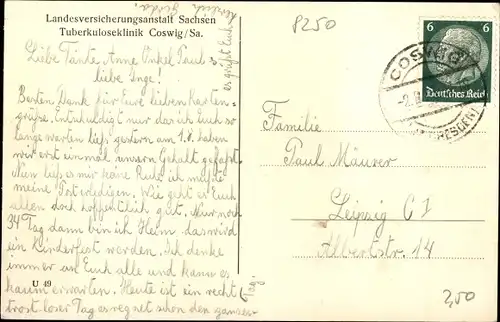 Landesversicherungsanstalt Sachsen
Tuberkuloseklinik Coswig/Sa.
Liebe Tante Anne Onkel Paul u.
liebe Inge!
Besten Dank für Eure lieben Karten-
grüße. Entschuldigt nur das ich Euch so
lange warten ließ, gestern am 1. haben
wir erst einmal unsern Gehalt gefaßt.
Nun ließ es mir keine Ruhe ich mußte
meine Post erledigen. Wie geht es Euch
allen doch hoffentlich gut. Nur noch
34 Tag dann bin ich Heim, das wird
ein Kinderfest werden. Ich denke
immer an Euch alle und kann es
kaum erwarten. Heute ist ein recht
trostloser Tag es regnet schon den ganzen
Tag.
es grüßt Euch
herzlich
U 49
8250
6 6
Deutsches Reich
COSWIG
DRESDEN
Familie
Paul Mäurer
Leipzig C 1
Albertstr. 14
2,50